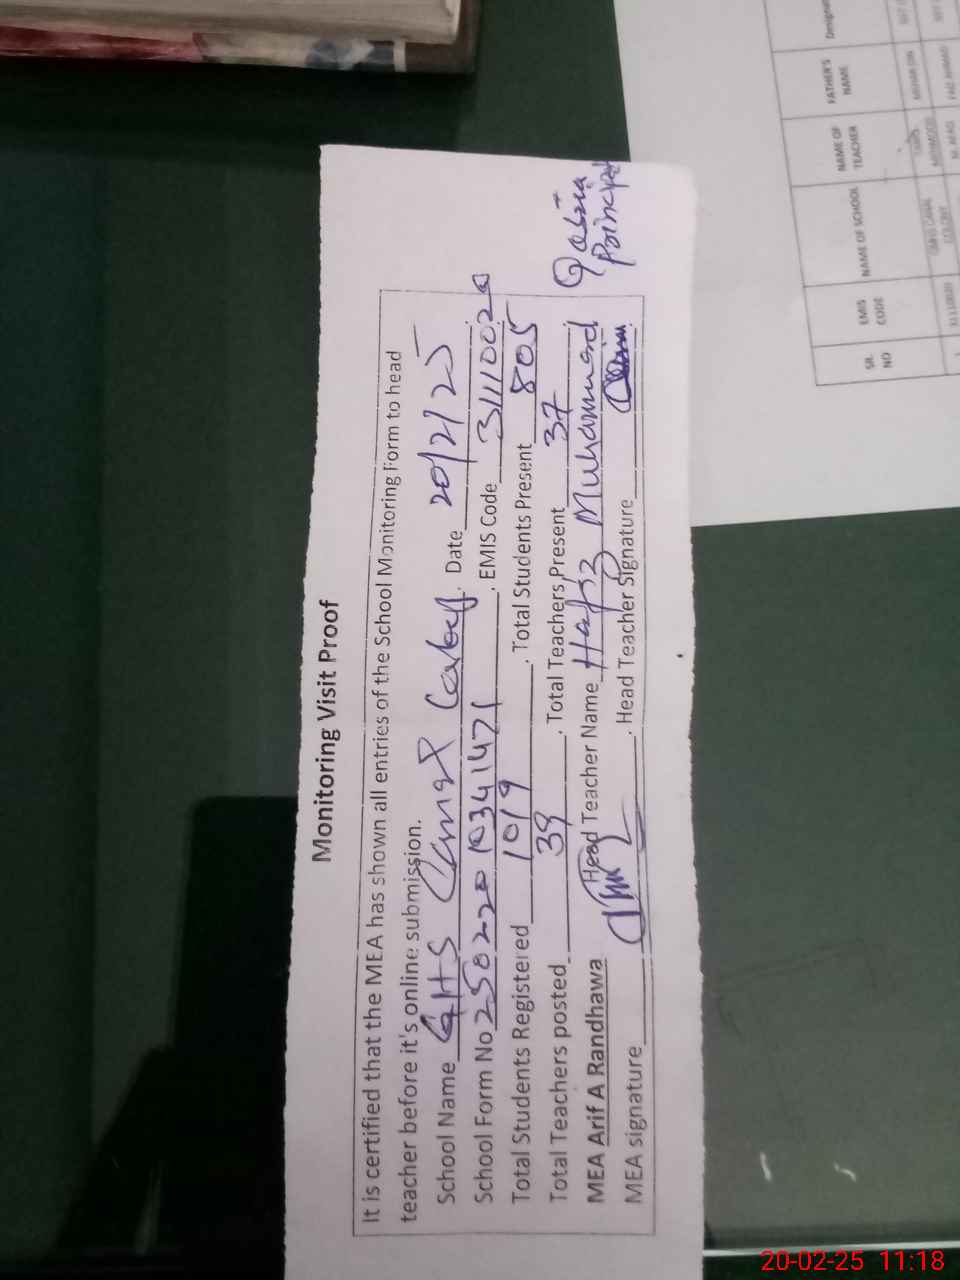 Monitoring Visit Proof
It is certified that the MEA has shown all entries of the School Monitoring Form to head
teacher before it's online submission.
School Name GHS Canal Colony. Date 20/2/25
School Form No 2502220 1034 1421, EMIS Code 31110020
Total Students Registered 1019, Total Students Present 805
Total Teachers posted 39, Total Teachers Present 37
MEA Arif A Randhawa Head Teacher Name Hafiz Muhammad
MEA signature , Head Teacher Signature
Qasim
Principal
SR. NO
EMIS CODE
NAME OF SCHOOL
NAME OF TEACHER
FATHER'S NAME
20-02-25 11:18